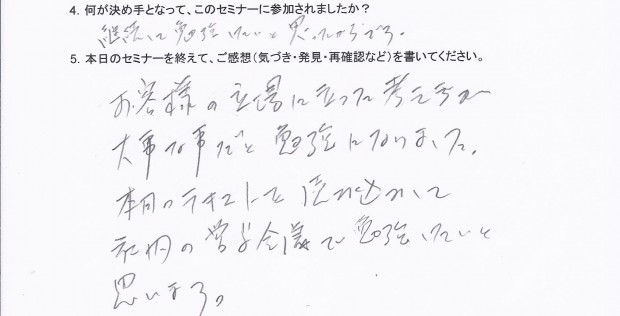 4. 何が決め手となって、このセミナーに参加されましたか？
継続して勉強したいと思ったからです。
5. 本日のセミナーを終えて、ご感想（気づき・発見・再確認など）を書いてください。
お客様の立場に立った考え方が
大事な事だと勉強になりました。
本日のテキストを読み込れして
社内の営業会議で勉強したいと
思います。